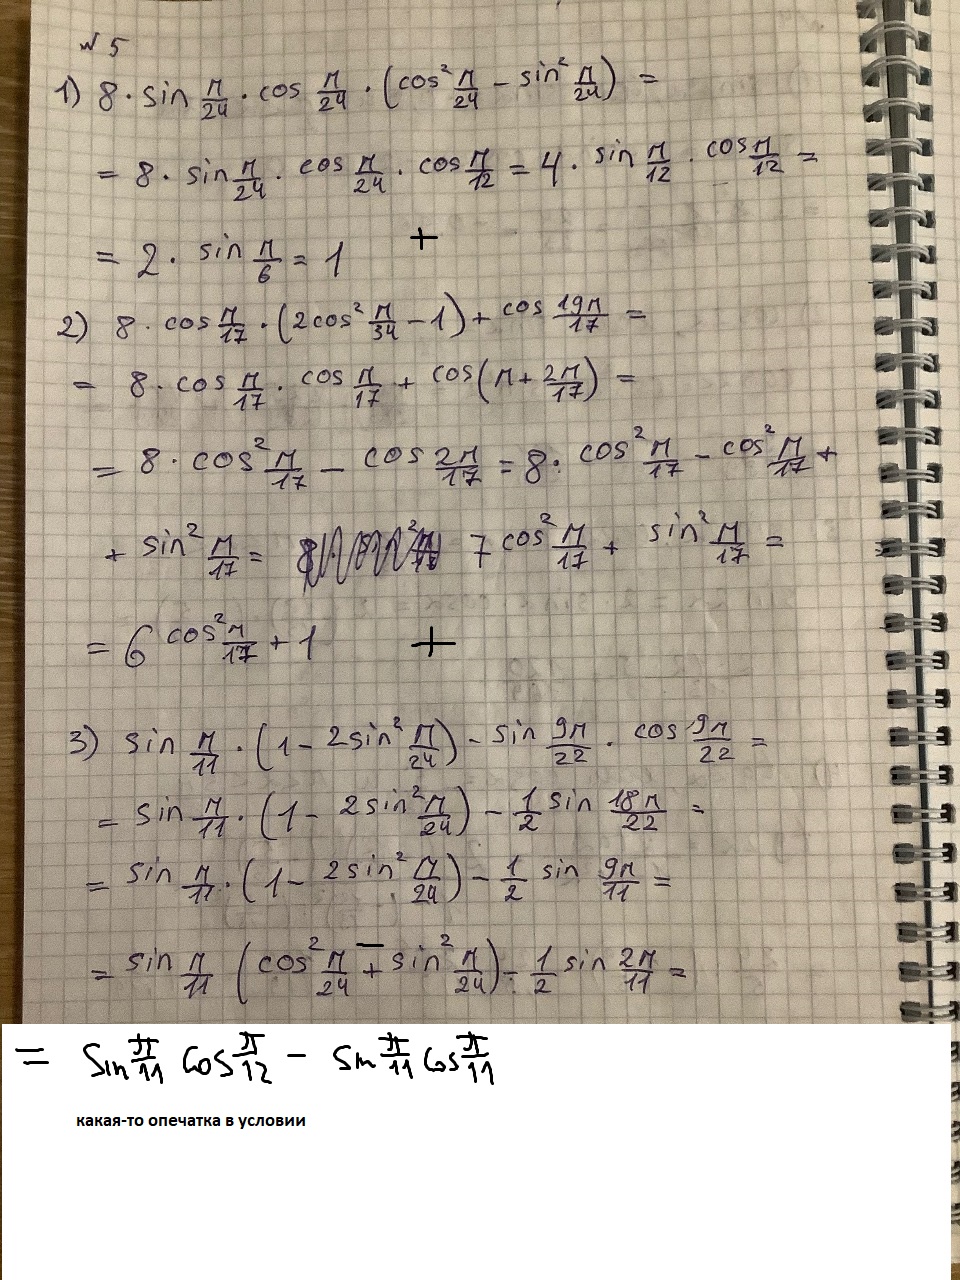 № 5
1) 8 · sin π/24 · cos π/24 · (cos² π/24 − sin² π/24) =
= 8 · sin π/24 · cos π/24 · cos π/12 = 4 · sin π/12 · cos π/12 =
= 2 · sin π/6 = 1 +
2) 8 · cos π/17 · (2cos² π/34 − 1) + cos 19π/17 =
= 8 · cos π/17 · cos π/17 + cos(π + 2π/17) =
= 8 · cos² π/17 − cos 2π/17 = 8 · cos² π/17 − cos² π/17 +
+ sin² π/17 = 7 cos² π/17 + sin² π/17 =
= 6 cos² π/17 + 1 +
3) sin π/11 · (1 − 2sin² π/24) − sin 9π/22 · cos 9π/22 =
= sin π/11 · (1 − 2sin² π/24) − 1/2 sin 18π/22 =
= sin π/11 · (1 − 2sin² π/24) − 1/2 sin 9π/11 =
= sin π/11 (cos² π/24 + sin² π/24) − 1/2 sin 2π/11 =
= sin π/11 cos π/12 − sin π/11 cos π/11
какая-то опечатка в условии